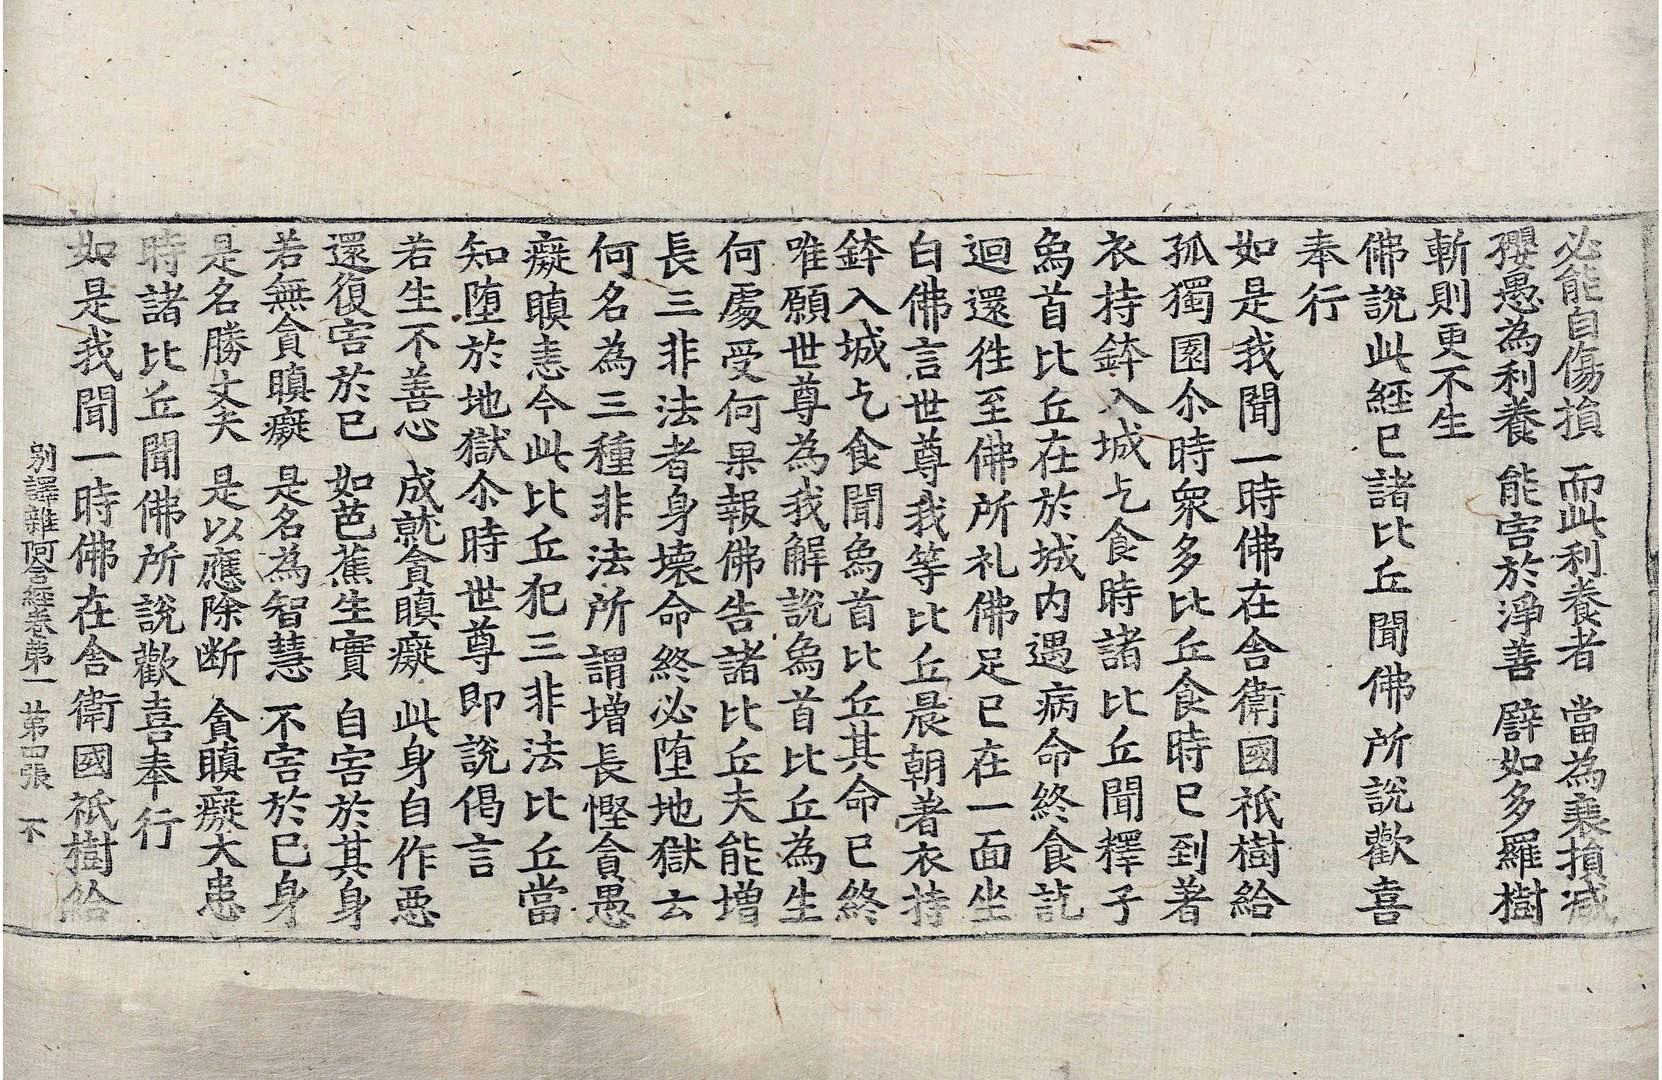 必能自傷損 而此利養者 當為衰損減
孾愚為利養 能害於淨善 譬如多羅樹
斬則更不生
佛說此經已諸比丘聞佛所說歡喜
奉行
如是我聞一時佛在舍衛國祇樹給
孤獨園尒時衆多比丘食時已到著
衣持鉢入城乞食時諸比丘聞釋子
為首比丘在於城內遇病命終食訖
迴還徃至佛所礼佛足已在一面坐
白佛言世尊我等比丘晨朝著衣持
鉢入城乞食聞為首比丘其命已終
唯願世尊為我解說為首比丘為生
何處受何果報佛告諸比丘夫能增
長三非法者身壞命終必墮地獄云
何名為三種非法所謂增長慳貪愚
癡瞋恚今此比丘犯三非法比丘當
知墮於地獄尒時世尊即說偈言
若生不善心 成就貪瞋癡 此身自作惡
還復害於己 如芭蕉生實 自害於其身
若無貪瞋癡 是名為智慧 不害於己身
是名勝丈夫 是以應除断 貪瞋癡大患
時諸比丘聞佛所說歡喜奉行
如是我聞一時佛在舍衛國祇樹給
別譯雜阿含經卷第一 第四張 不